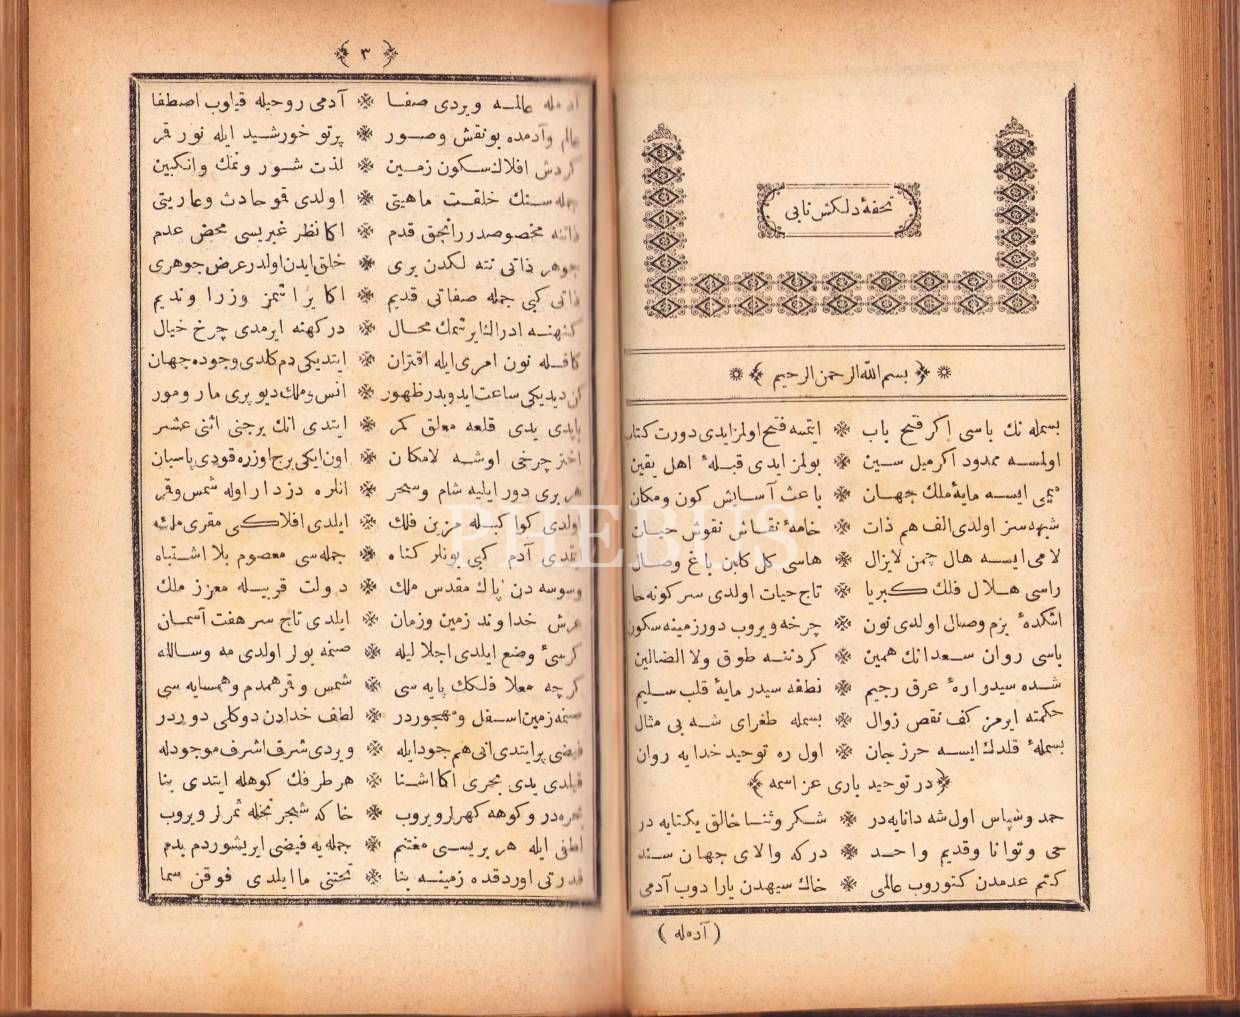 تحفهٔ دلکش نابی
بسم الله الرحمن الرحیم
بسمله نك باسی اکر فتح باب ❊ ایتمسه فتح اولمز ایدی دورت کتاب
اولمسه ممدود اکر میل سین ❊ بولمز ایدی قبلهٔ اهل یقین
میمی ایسه مایهٔ ملك جهان ❊ باعث آسایش کون ومکان
شبهه سز اولدی الف هم ذات ❊ خامهٔ نقاش نقوش حیات
لامی ایسه هال چمن لایزال ❊ هاسی کل کلبن باغ وصال
راسی هلال فلك کبریا ❊ تاج حیات اولدی سر کونه حا
اشکدهٔ بزم وصال اولدی نون ❊ چرخه ویروب دور زمینه سکون
یاسی روان سعدانك همین ❊ کردننه طوق ولا الضالین
شده سیدر ارهٔ عرق رجیم ❊ نقطه سیدر مایهٔ قلب سلیم
حکمته ایرمز کف نقص زوال ❊ بسمله طغرای شه بی مثال
بسملهٔ قلدك ایسه حرز جان ❊ اول ره توحید خدایه روان
در توحید باری عز اسمه
حمد وسپاس اول شه دانایه در ❊ شکر وثنا خالق یکتایه در
حی وتوانا وقدیم واحد ❊ درکه والای جهان سند
کتم عدمدن کتوروب عالمی ❊ خاك سیهدن یارادوب آدمی
( آدمله )
٣
آدمله عالمه ویردی صفا ❊ آدمی روحیله قیلوب اصطفا
عالم وآدمده بو نقش وصور ❊ پرتو خورشید ایله نور قمر
کردش افلاك سکون زمین ❊ لذت شور ونمك وانکبین
جمله سنك خلقت ماهیتی ❊ اولدی قمو حادث وعاریتی
ذاتنه مخصوصدر انجق قدم ❊ اکا نظر غیریسی محض عدم
جوهر ذاتی نته لکدن بری ❊ خلق ایدن اولدر عرض جوهری
ذاتی کبی جمله صفاتی قدیم ❊ اکا یراشمز وزرا وندیم
کنهنه ادراك ایرشمك محال ❊ درکهنه ایرمدی چرخ خیال
کافله نون امری ایله اقتران ❊ ایتدیکی دم کلدی وجوده جهان
کن دیدیکی ساعت ایدوبدر ظهور ❊ انس وملك دیو پری مار ومور
یاپدی یدی قلعه معلق کمر ❊ ایتدی انك برجنی اثنی عشر
اختر چرخی اوشه لامکان ❊ اون ایکی برج اوزره قودی پاسبان
هر بری دور ایلیه شام وسحر ❊ انلره دزدار اوله شمس وقمر
اولدی کواکبله مزین فلك ❊ ایلدی افلاکی مقری ملك
ایتمدی آدم کبی بونلر کناه ❊ جمله سی معصوم بلا اشتباه
وسوسه دن پاك مقدس ملك ❊ دولت قربیله معزز ملك
عرش خداوند زمین وزمان ❊ ایلدی تاج سر هفت آسمان
کرسیٔ وضع ایلدی اجلا لیله ❊ صنمه بولر اولدی مه وسالله
کرچه معلا فلکك پایه سی ❊ شمس وقمر همدم وهمسایه سی
صنمه زمین اسفل ومهجوردر ❊ لطف خدادن دوکلی دوردر
فیضی پر ایتدی انی هم جودایله ❊ ویردی شرف اشرف موجودله
قیلدی یدی بحری اکا اشنا ❊ هر طرفك کوهله ایتدی بنا
بحره در وکوهه کهرلر ویروب ❊ خاکه شجر نخله ثمرلر ویروب
لطفی ایله هر بریسی مغتنم ❊ جمله یه فیضی ایریشوردم بدم
قدرتی اوردقده زمینه بنا ❊ تحتنی ما ایلدی فوقن سما
PHEBUS